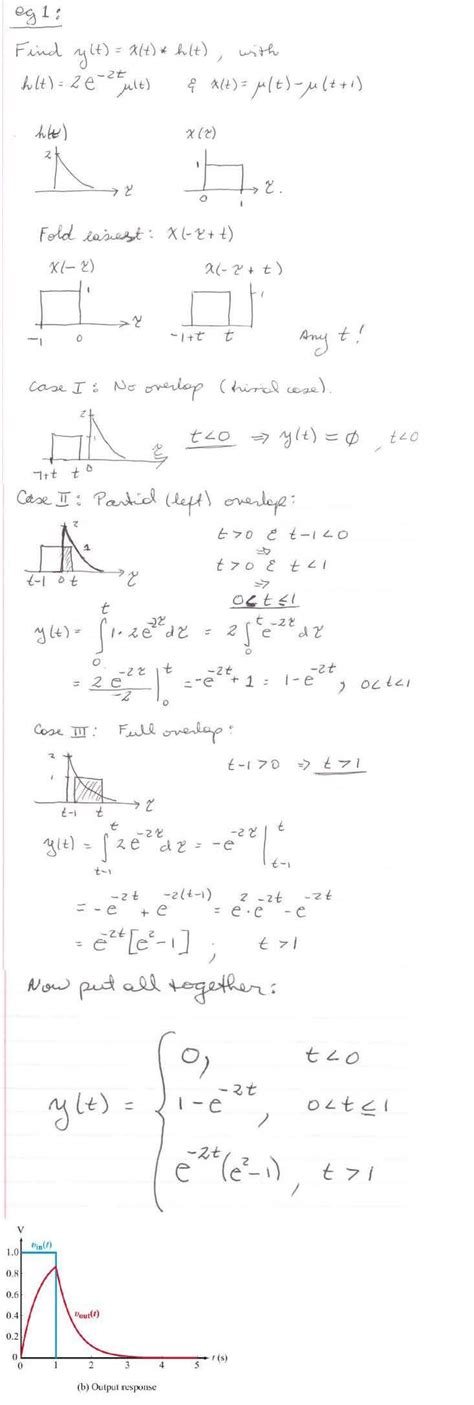 eg 1:
Find y(t) = x(t) * h(t), with
h(t) = 2e^{-2t} μ(t) & x(t) = μ(t) - μ(t+1)
h(τ) x(τ)
2 1
τ 0 1 τ.
Fold easiest: x(-τ+t)
x(-τ) x(-τ+t)
1 1
-1 0 τ -1+t t Any t!
Case I: No overlap (trivial case).
2
1 t<0 ⇒ y(t) = ∅, t<0
-1+t t 0 τ
Case II: Partial (left) overlap:
2 t>0 & t-1<0
1 ⇒
t-1 0 t τ t>0 & t<1
⇒
0<t≤1
y(t) = ∫_0^t 1·2e^{-2τ} dτ = 2∫_0^t e^{-2τ} dτ
= 2e^{-2τ}/-2 |_0^t = -e^{-2t} + 1 = 1-e^{-2t}, 0<t<1
Case III: Full overlap:
2 t-1>0 ⇒ t>1
1
t-1 t τ
y(t) = ∫_{t-1}^t 2e^{-2τ} dτ = -e^{-2τ} |_{t-1}^t
= -e^{-2t} + e^{-2(t-1)} = e^2·e^{-2t} - e^{-2t}
= e^{-2t}[e^2-1] ; t>1
Now put all together:
0, t<0
y(t) = { 1-e^{-2t}, 0<t≤1
e^{-2t}(e^2-1), t>1
V
v_in(t)
1.0
0.8
0.6
0.4 v_out(t)
0.2
0 t (s)
0 1 2 3 4 5
(b) Output response